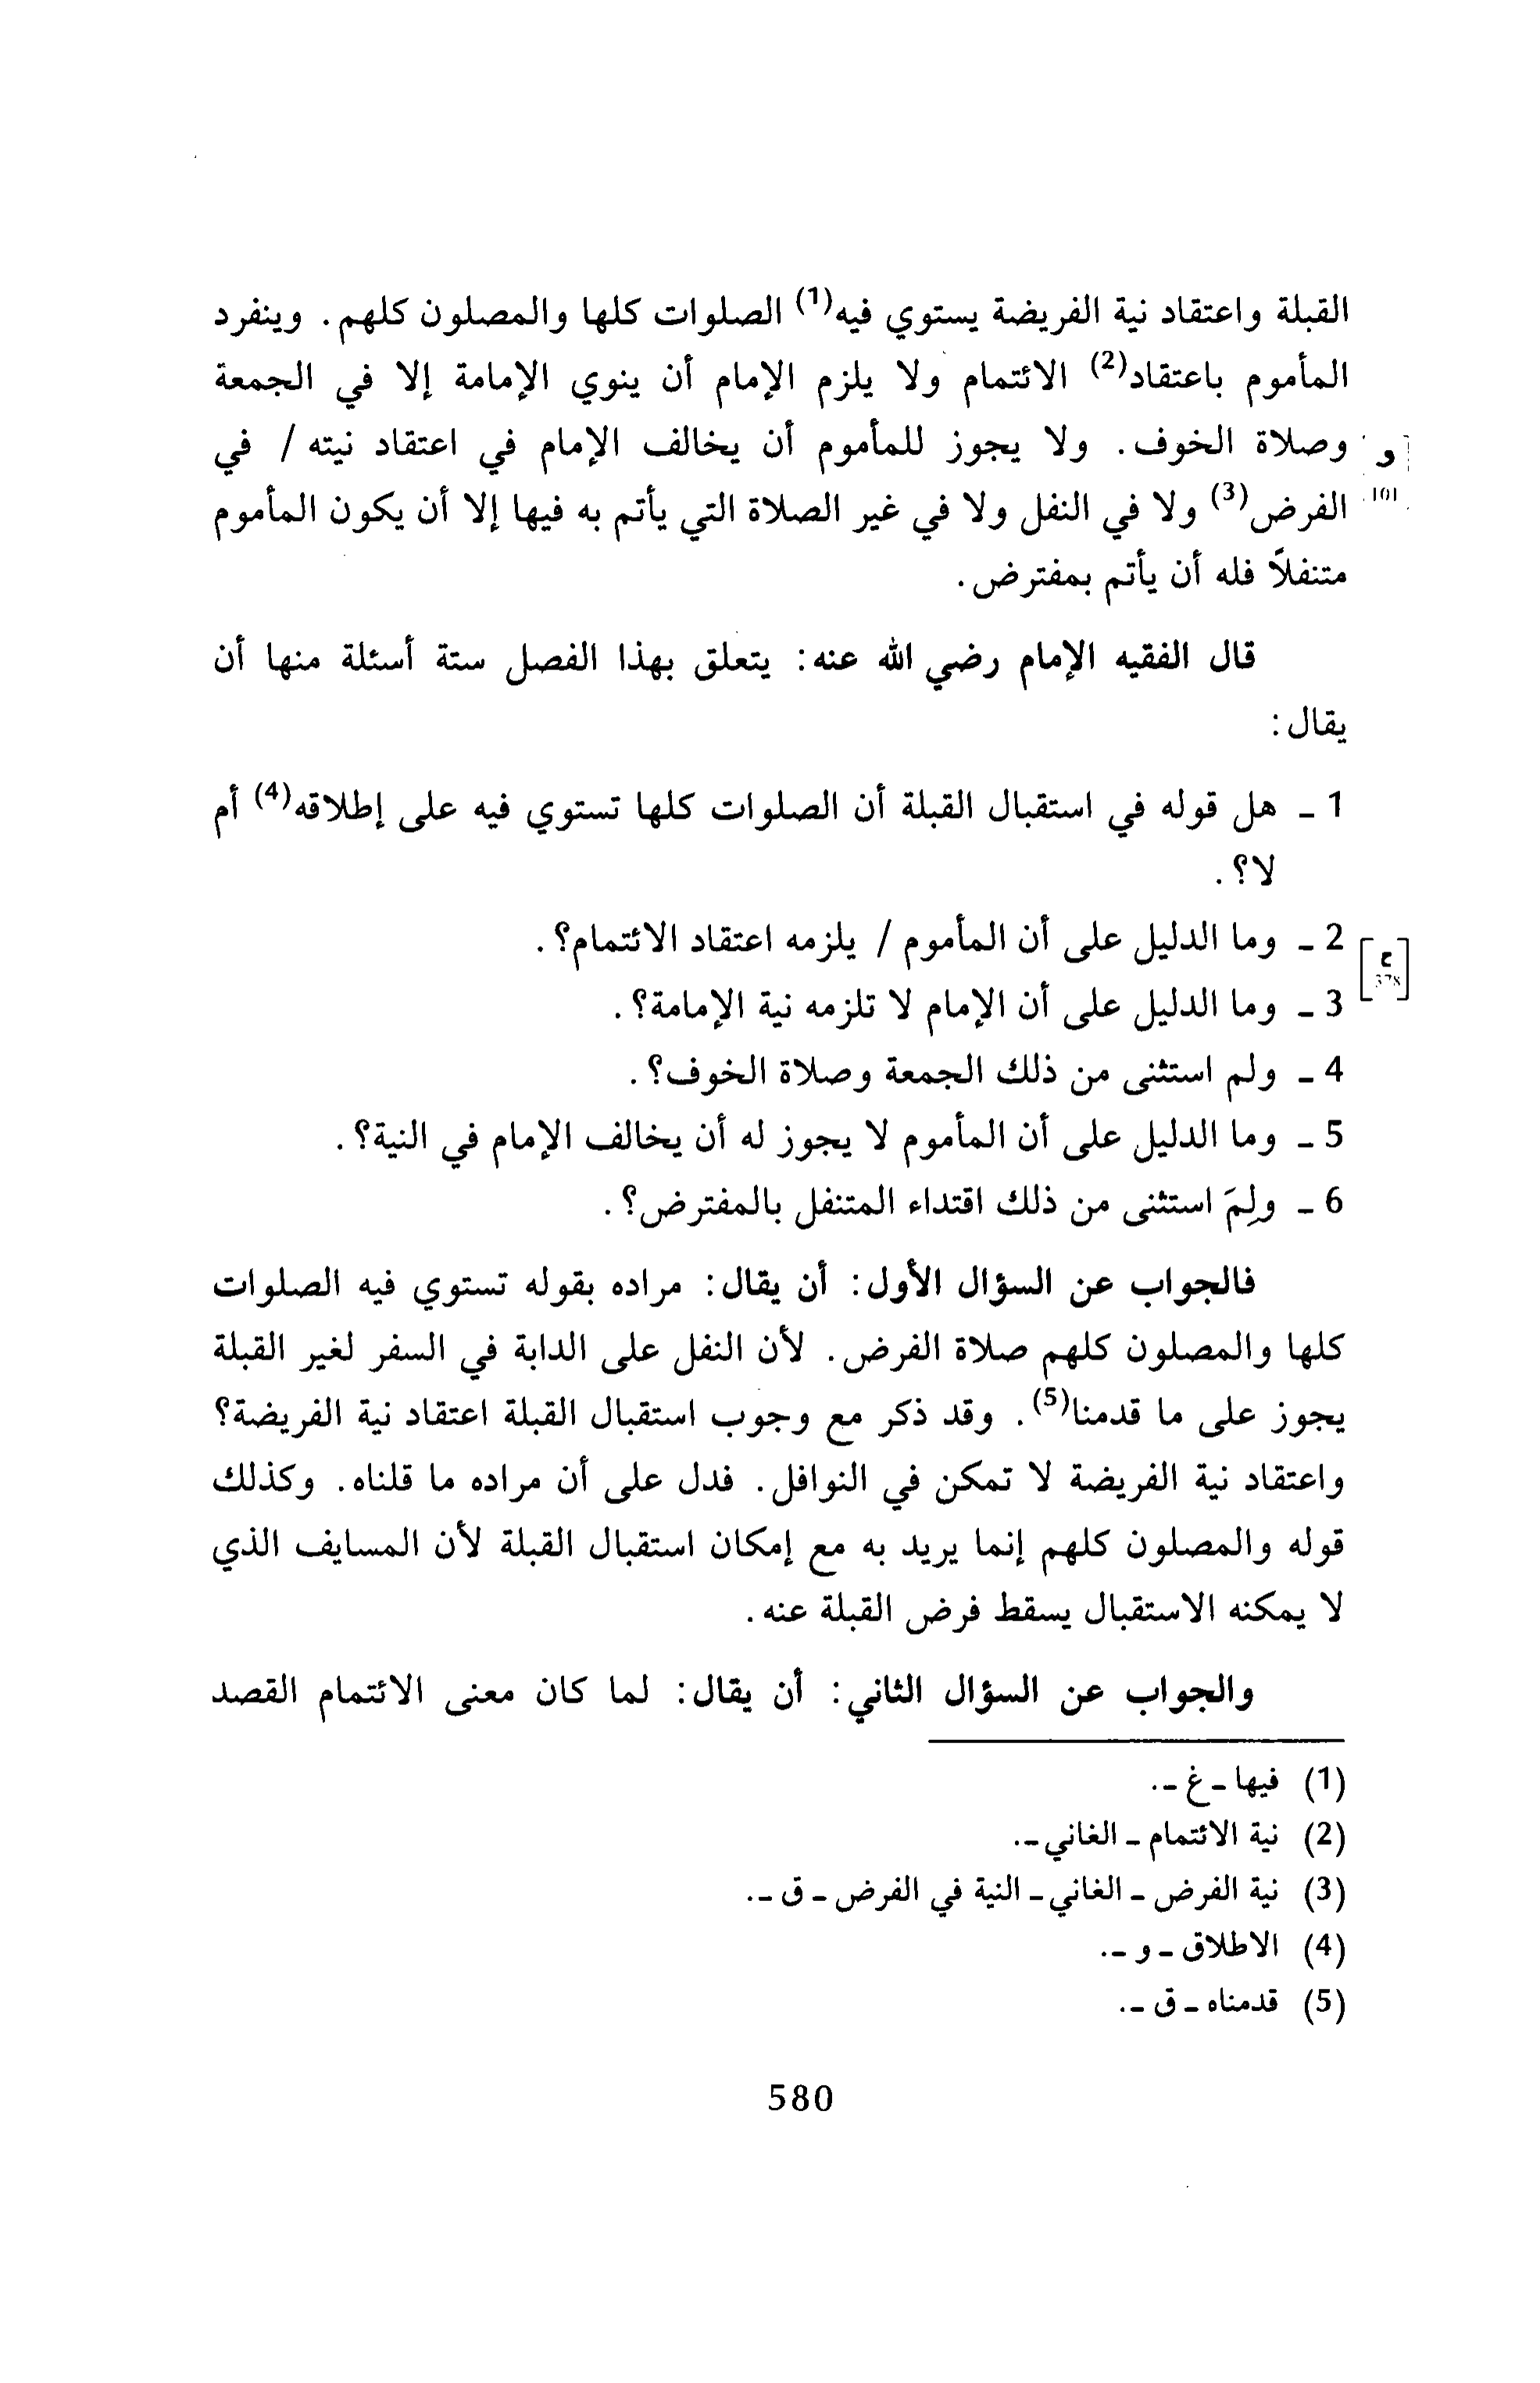 القبلة واعتقاد نية الفريضة يستوي فيه(1) الصلوات كلها والمصلون كلهم. وينفرد
المأموم باعتقاد(2) الائتمام ولا يلزم الإمام أن ينوي الإمامة إلا في الجمعة
وصلاة الخوف. ولا يجوز للمأموم أن يخالف الإمام في اعتقاد نيته / في
و
الفرض(3) ولا في النفل ولا في غير الصلاة التي يأتم به فيها إلا أن يكون المأموم
متنفلاً فله أن يأتم بمفترض.
قال الفقيه الإمام رضي الله عنه: يتعلق بهذا الفصل ستة أسئلة منها أن
يقال:
1 ـ هل قوله في استقبال القبلة أن الصلوات كلها تستوي فيه على إطلاقه(4) أم
لا؟.
2 ـ وما الدليل على أن المأموم / يلزمه اعتقاد الائتمام؟.
[ح]
3 ـ وما الدليل على أن الإمام لا تلزمه نية الإمامة؟.
4 ـ ولم استثنى من ذلك الجمعة وصلاة الخوف؟.
5 ـ وما الدليل على أن المأموم لا يجوز له أن يخالف الإمام في النية؟.
6 ـ ولِمَ استثنى من ذلك اقتداء المتنفل بالمفترض؟.
فالجواب عن السؤال الأول: أن يقال: مراده بقوله تستوي فيه الصلوات
كلها والمصلون كلهم صلاة الفرض. لأن النفل على الدابة في السفر لغير القبلة
يجوز على ما قدمنا(5). وقد ذكر مع وجوب استقبال القبلة اعتقاد نية الفريضة؟
واعتقاد نية الفريضة لا تمكن في النوافل. فدل على أن مراده ما قلناه. وكذلك
قوله والمصلون كلهم إنما يريد به مع إمكان استقبال القبلة لأن المسايف الذي
لا يمكنه الاستقبال يسقط فرض القبلة عنه.
والجواب عن السؤال الثاني: أن يقال: لما كان معنى الائتمام القصد
(1) فيها ـ غ ـ.
(2) نية الائتمام ـ الغاني ـ.
(3) نية الفرض ـ الغاني ـ النية في الفرض ـ ق ـ.
(4) الاطلاق ـ و ـ.
(5) قدمناه ـ ق ـ.
580